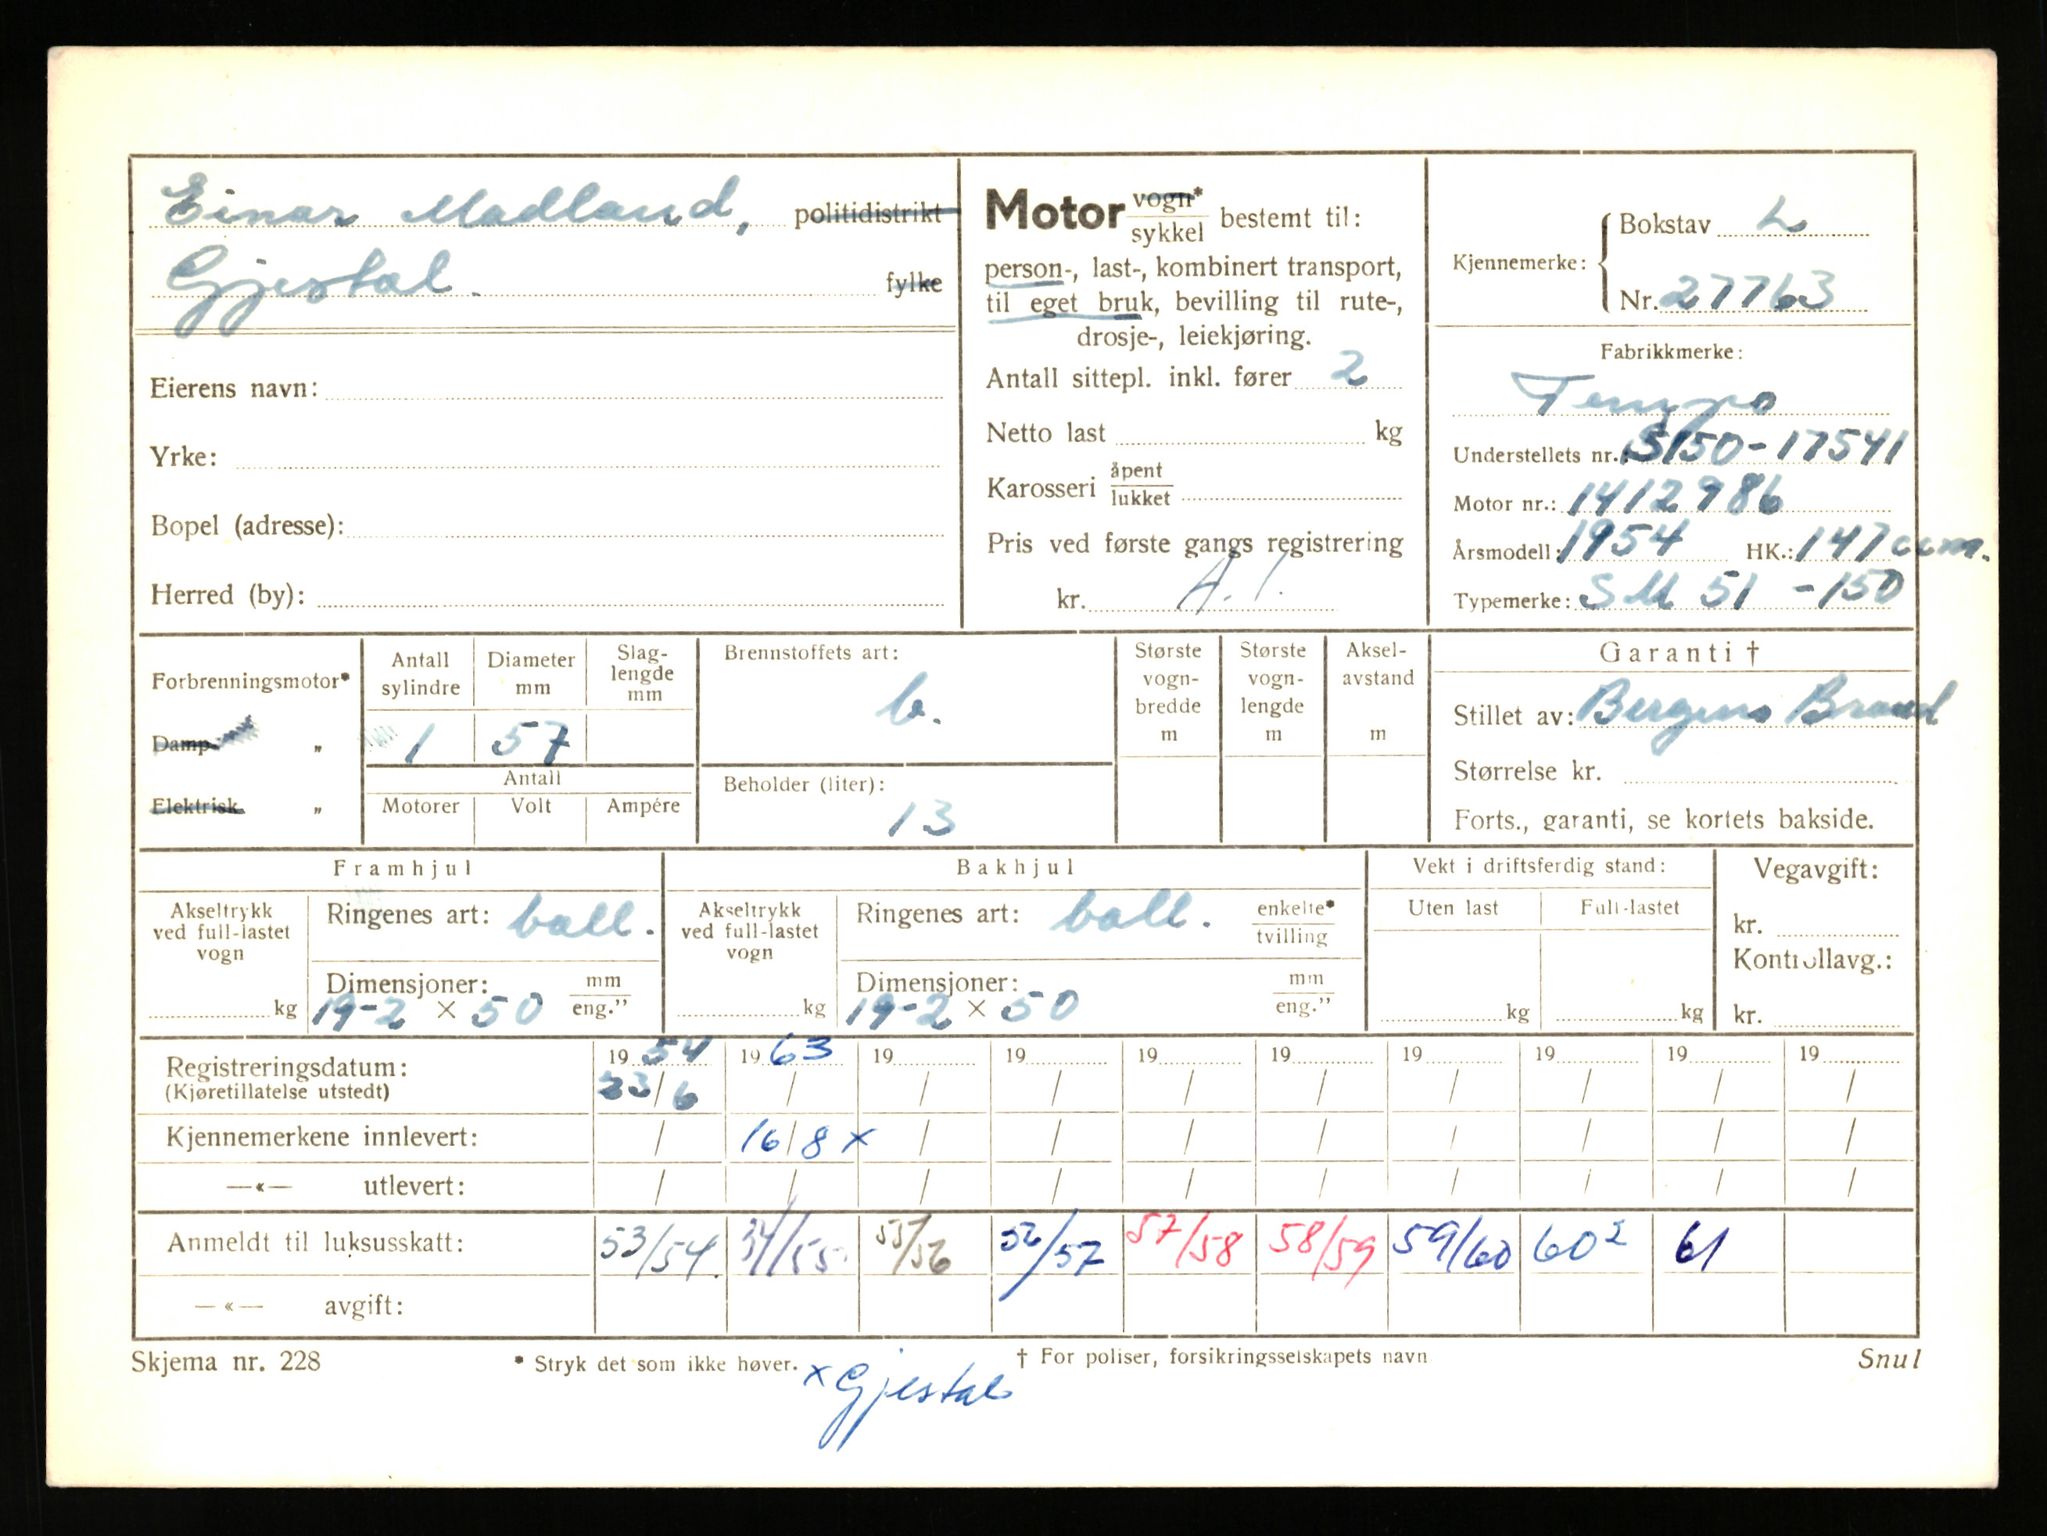 Einar Madland, politidistrikt
Gjestal. fylke
Eierens navn:
Yrke:
Bopel (adresse):
Herred (by):
Motor vogn* sykkel bestemt til:
person-, last-, kombinert transport,
til eget bruk, bevilling til rute-,
drosje-, leiekjøring.
Antall sittepl. inkl. fører 2
Netto last kg
Karosseri åpent lukket
Pris ved første gangs registrering
kr. A. I.
Kjennemerke: Bokstav L
Nr. 27763
Fabrikkmerke:
Tempo
Understellets nr.: S150-17541
Motor nr.: 1412986
Årsmodell: 1954 HK.: 147 ccm.
Typemerke: SM 51 -150
Forbrenningsmotor*
Damp- „
Elektrisk „
Antall sylindre Diameter mm Slag-lengde mm
1 57
Antall
Motorer Volt Ampére
Brennstoffets art:
b.
Beholder (liter):
13
Største vogn-bredde m
Største vogn-lengde m
Aksel-avstand m
Garanti †
Stillet av: Bergens Brand
Størrelse kr.
Forts., garanti, se kortets bakside.
Framhjul
Akseltrykk ved full-lastet vogn
kg
Ringenes art: ball.
Dimensjoner: mm eng."
19-2 × 50
Bakhjul
Akseltrykk ved full-lastet vogn
kg
Ringenes art: ball. enkelte* tvilling
Dimensjoner: mm eng."
19-2 × 50
Vekt i driftsferdig stand:
Uten last Full-lastet
kg kg
Vegavgift:
kr.
Kontrollavg.:
kr.
Registreringsdatum: 19 54 19 63 19 19 19 19 19 19 19 19
(Kjøretillatelse utstedt) 23/6 / / / / / / / / /
Kjennemerkene innlevert: / 16/8 x / / / / / / / /
—«— utlevert: / / / / / / / / / /
Anmeldt til luksusskatt: 53/54. 54/55. 55/56 56/57 57/58 58/59 59/60 60² 61
—«— avgift:
Skjema nr. 228 * Stryk det som ikke høver. † For poliser, forsikringsselskapets navn Snul
x Gjestal